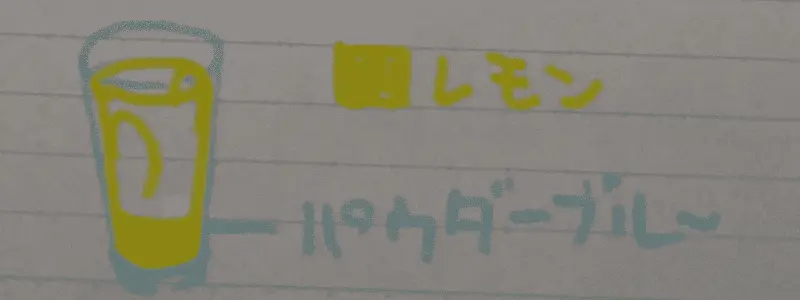 レモン
パウダーブルー